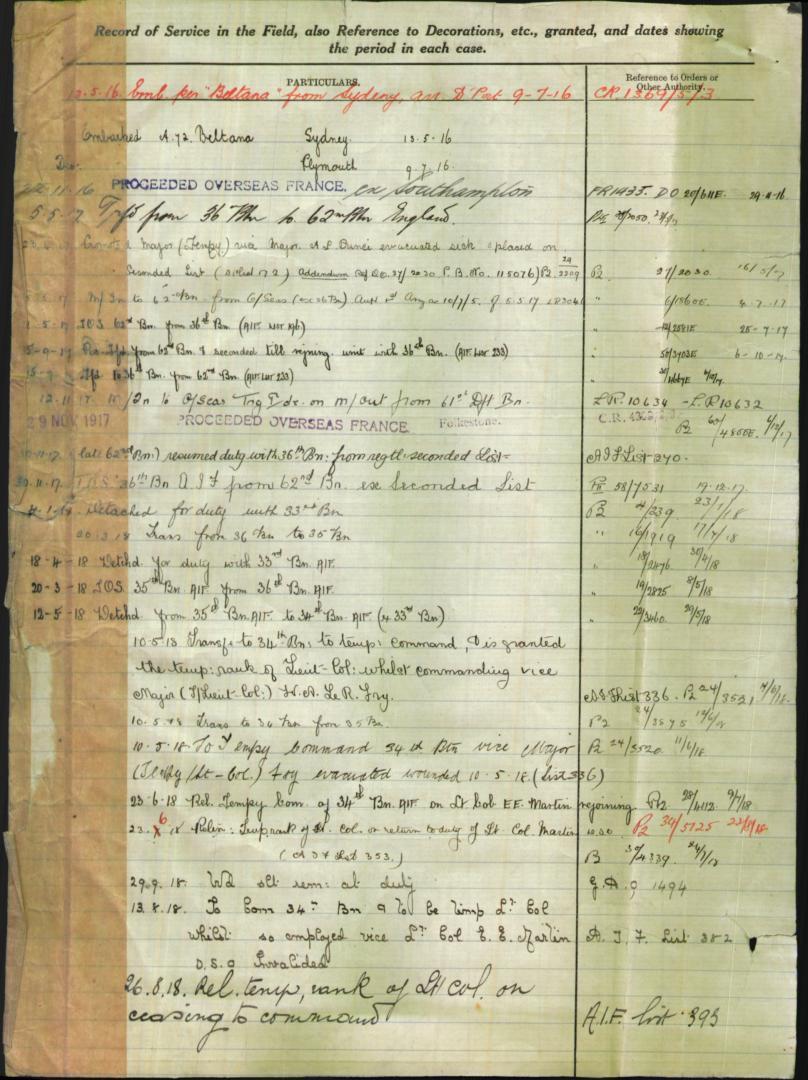 Record of Service in the Field, also Reference to Decorations, etc., granted, and dates showing
the period in each case.
PARTICULARS.
Reference to Orders or
Other Authority.
13.5.16. Emb. per "Beltana" from Sydney, arr. D'Port 9-7-16 CR 1369/5/3
Embarked A.72 Beltana Sydney 13.5.16
Plymouth 9.7.16.
22.11.16 PROCEEDED OVERSEAS FRANCE. ex Southampton FR1433. DO 20/611E. 29.11.16
5.5.17 Tfd from 36 Bn to 62nd Bn England.
Promoted Major (Tempy) vice Major evacuated sick & placed on
Seconded List Addendum P2 29/2209 P2 27/2030
M/In to 62nd Bn from O/Seas 5.5.17 " 4.7.17
TOS 62nd Bn. from 36th Bn. (AIF LIST 196) " 25-7-17
5-9-17 from 62nd Bn & seconded till rejning. unit with 36th Bn. (AIF LIST 233) 6-10-17
to 36th Bn. from 62nd Bn. (AIF LIST 233)
12.11.17. M/In to O/Seas Trg Bde. on m/out from 61st Dft Bn. L.R. 10634 - L.R 10632
29 NOV 1917 PROCEEDED OVERSEAS FRANCE. Folkestone. C.R.
P2 60/4800E.
(late 62nd Bn.) resumed duty with 36th Bn. from regtl. seconded List A.I.F List 270.
30.11.17. T.O.S. 36th Bn A.I.F from 62nd Bn. ex Seconded List P2 58/7531 17.12.17.
Detached for duty with 33rd Bn P2 4/239 23/1/18
20.3.18 Trans from 36 Bn to 35 Bn " 16/1919 17/4/18
18-4-18 Detchd. for duty with 33rd Bn. AIF " 18/2476 30/4/18
20-3-18 T.O.S. 35th Bn. AIF from 36th Bn. AIF " 19/2825 8/5/18
12-5-18 Detchd. from 35th Bn. AIF to 34th Bn. AIF (& 33rd Bn) " 22/3460 29/5/18
10.5.18 Transf. to 34th Bn: to temp: command, & is granted
the temp: rank of Lieut-Col: whilst commanding vice
Major (T/Lieut-Col:) H.A. Le R. Fry. A.I.F. List 336. P2 24/3521
10.5.18 Trans to 34 Bn from 35 Bn. P2 24/3575 12/6/18
10.5.18 To Tempy Command 34th Btn vice Major P2 24/3520 11/6/18
(Tempy/Lt-Col.) Fry evacuated wounded 10.5.18. (List 336)
23-6-18 Rel. Tempy Com. of 34th Bn. AIF on Lt Col. E.E. Martin rejoining P2 28/4112 9/7/18
23.6.18 Relin: Temp rank of Lt. Col. on return to duty of Lt. Col Martin P2 34/5125
(A.I.F List 353.) P2 30/4339.
29.9.18. Wd slt rem: at duty G.R.O 1494
13.8.18. To Com 34th Bn & to be temp Lt. Col
whilst so employed vice Lt. Col E.E. Martin A.I.F. List 382
D.S.O Invalided
26.8.18. Rel. temp, rank of Lt col. on
ceasing to command A.I.F. list 393